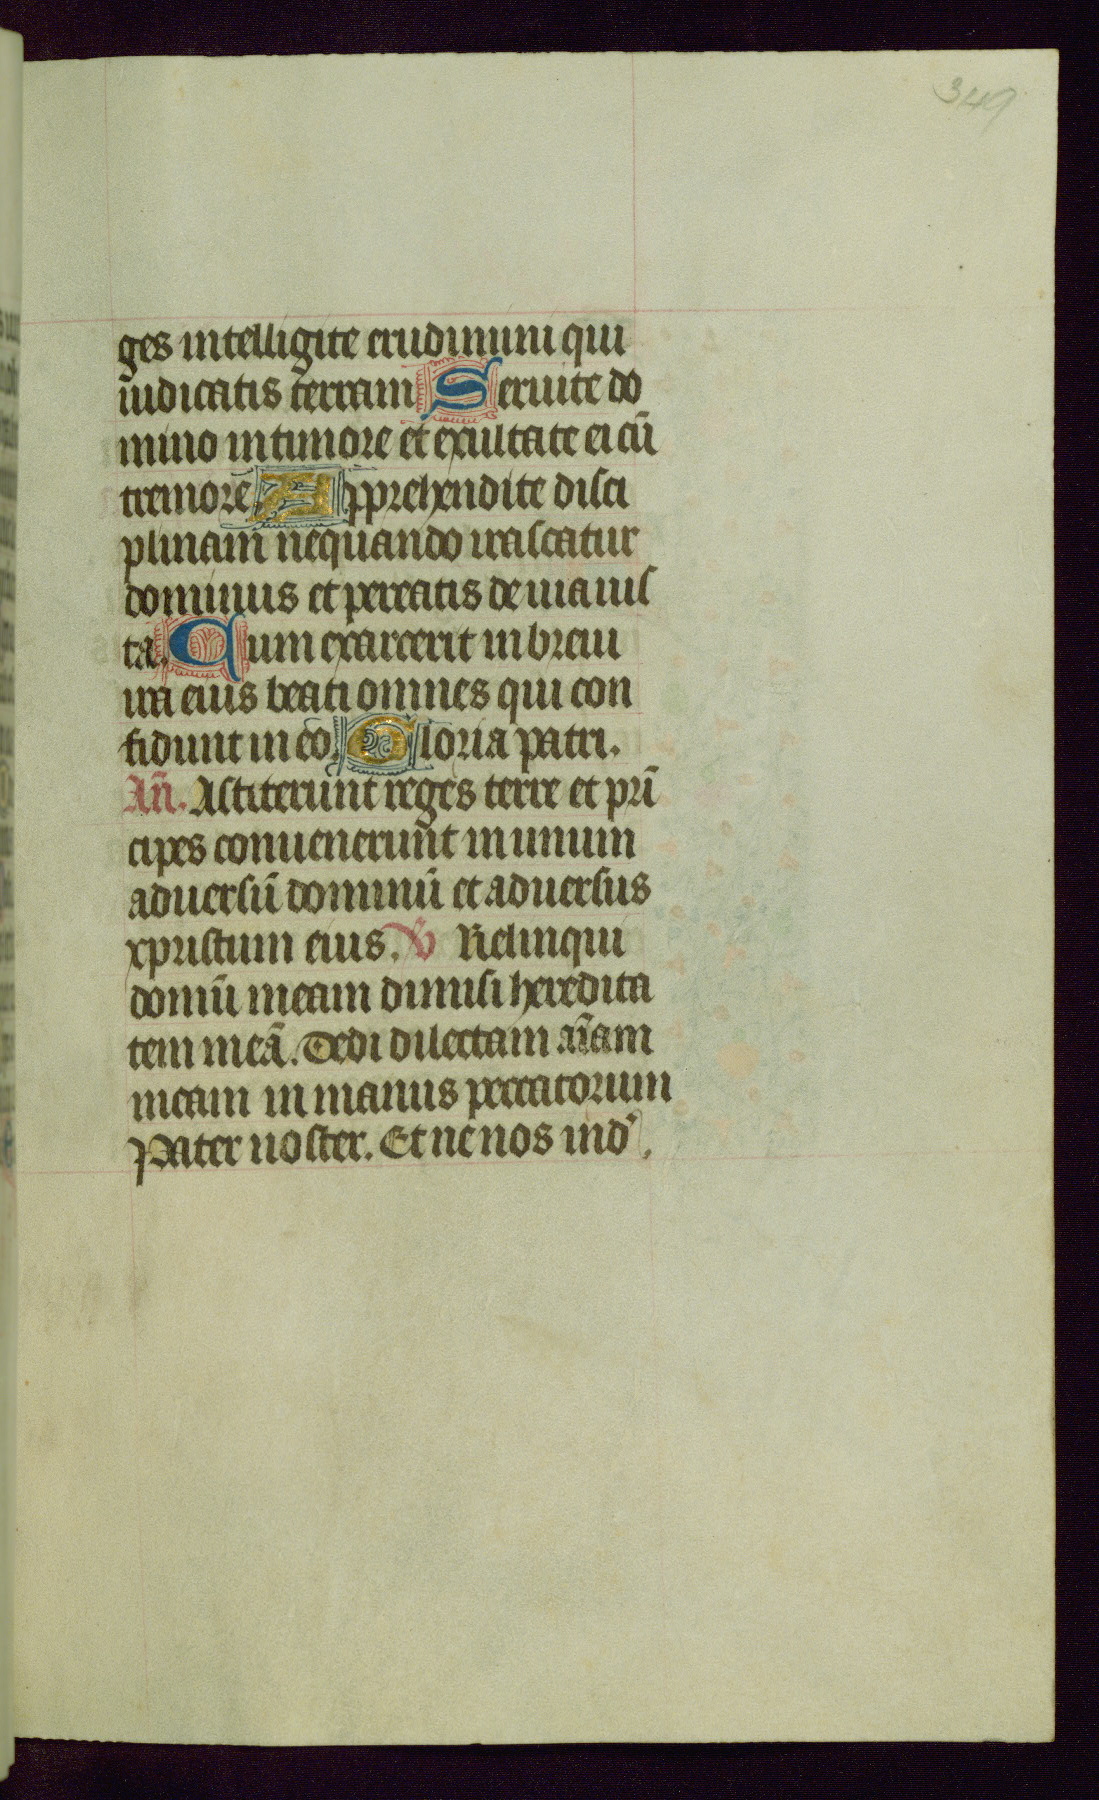 349
ges intelligite erudimini qui
iudicatis terram Seruite do
mino in timore et exultate ei cū
tremore. Apprehendite disci
plinam nequando irascatur
dominus et pereatis de uia ius
ta. Cum exarcerit in breui
ira eius beati omnes qui con
fidunt in eo. Gloria patri.
Añ. Astiterunt reges terre et prī
cipes conuenerunt in unum
aduersū dominū et aduersus
xpristum eius. ℣ Relinqui
domū meam dimisi heredita
tem meā. Dedi dilectam añam
meam in manus peccatorum
Pater noster. Et ne nos ind'.